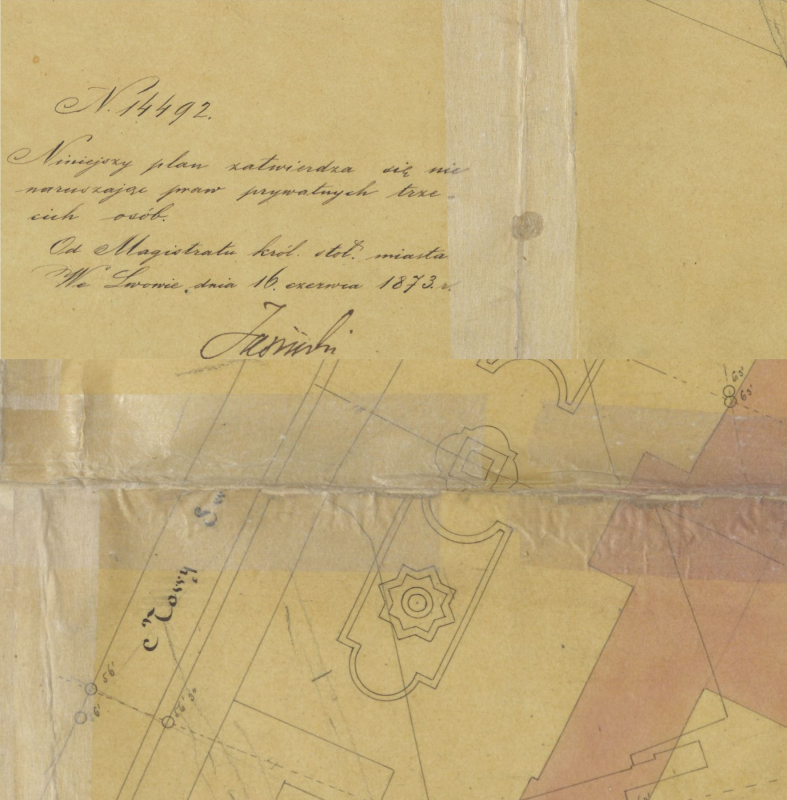 N. 14492.
Niniejszy plan zatwierdza się nie
naruszając praw prywatnych trze-
cich osób.
Od Magistratu król. stoł. miasta
We Lwowie, dnia 16. czerwca 1873. r.
Jasiński
63'
63'
Nowy
56'
6'